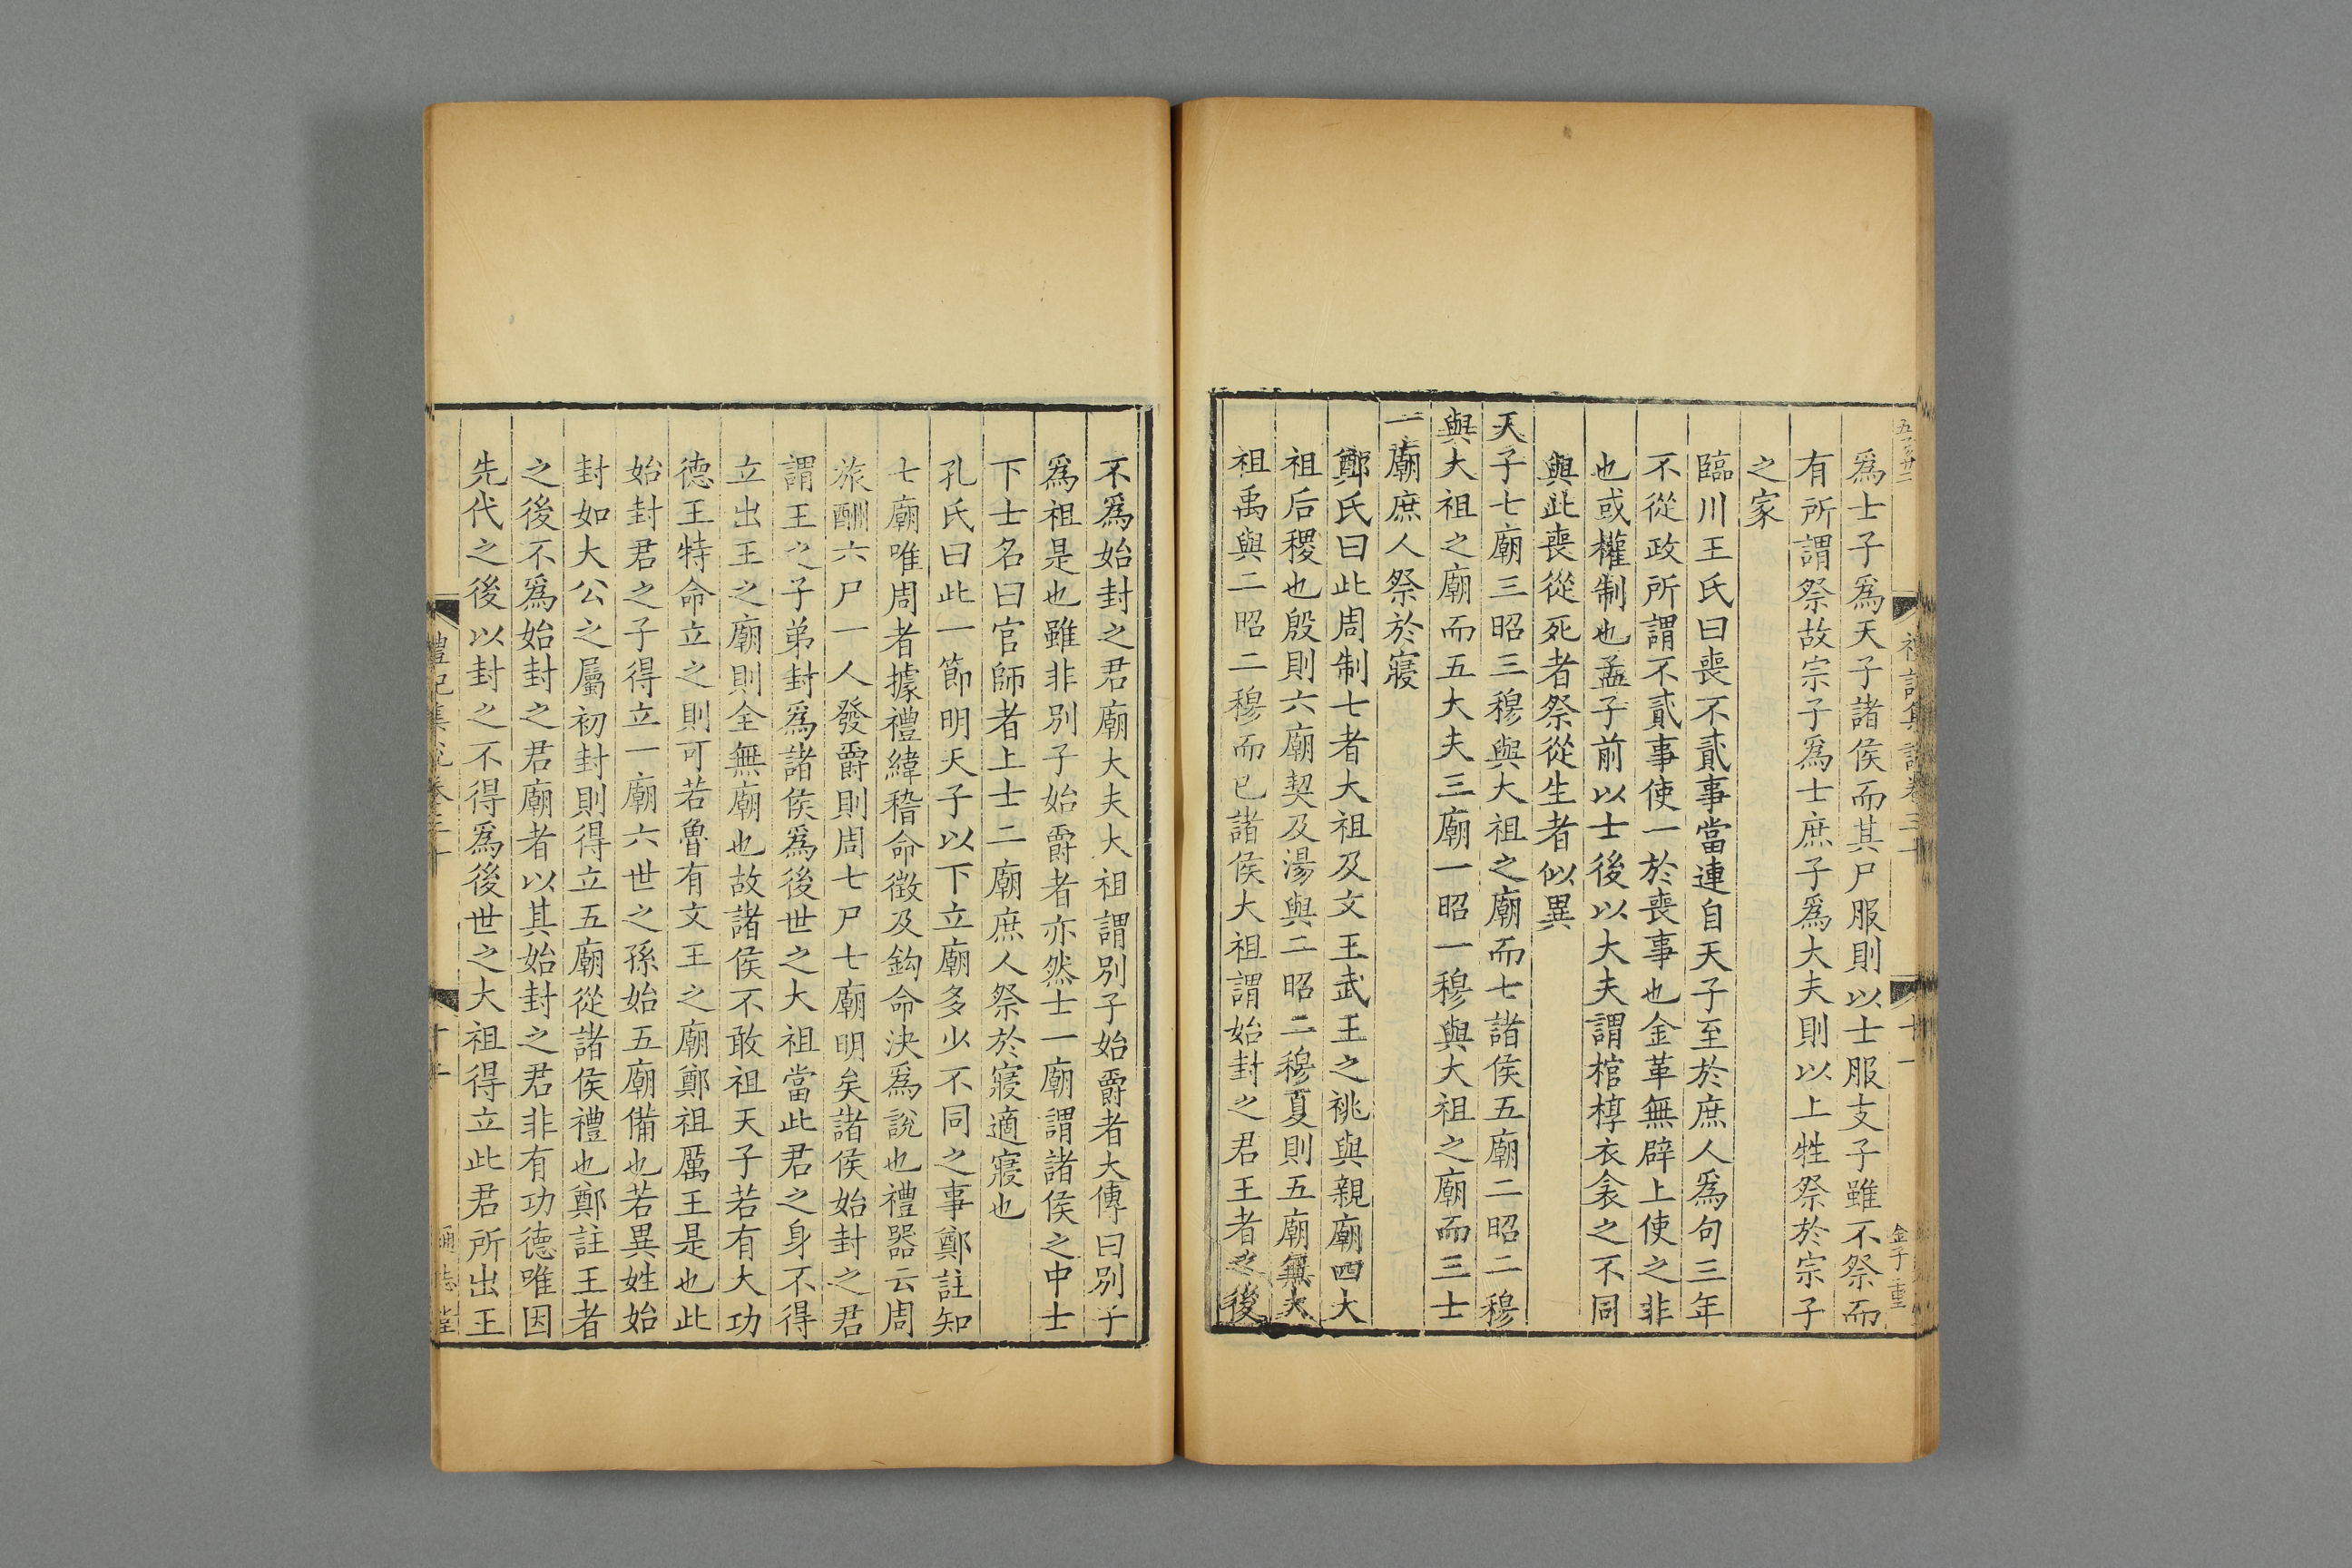 爲士子爲天子諸侯而其尸服則以士服支子雖不祭而
有所謂祭故宗子爲士庶子爲大夫則以上牲祭於宗子
之家
臨川王氏曰喪不貳事當連自天子至於庶人爲句三年
不從政所謂不貳事使一於喪事也金革無辟上使之非
也或權制也孟子前以士後以大夫謂棺椁衣衾之不同
與此喪從死者祭從生者似異
天子七廟三昭三穆與大祖之廟而七諸侯五廟二昭二穆
與大祖之廟而五大夫三廟一昭一穆與大祖之廟而三士
一廟庶人祭於寢
鄭氏曰此周制七者大祖及文王武王之祧與親廟四大
祖后稷也殷則六廟契及湯與二昭二穆夏則五廟無大
祖禹與二昭二穆而已諸侯大祖謂始封之君王者之後
不爲始封之君廟大夫大祖謂別子始爵者大傳曰別子
爲祖是也雖非別子始爵者亦然士一廟謂諸侯之中士
下士名曰官師者上士二廟庶人祭於寢適寢也
孔氏曰此一節明天子以下立廟多少不同之事鄭註知
七廟唯周者據禮緯稽命徵及鈎命決爲說也禮器云周
旅酬六尸一人發爵則周七尸七廟明矣諸侯始封之君
謂王之子弟封爲諸侯爲後世之大祖當此君之身不得
立出王之廟則全無廟也故諸侯不敢祖天子若有大功
德王特命立之則可若魯有文王之廟鄭祖厲王是也此
始封君之子得立一廟六世之孫始五廟備也若異姓始
封如大公之屬初封則得立五廟從諸侯禮也鄭註王者
之後不爲始封之君廟者以其始封之君非有功德唯因
先代之後以封之不得爲後世之大祖得立此君所出王
禮記集說卷三十
十一
金子重
通志堂